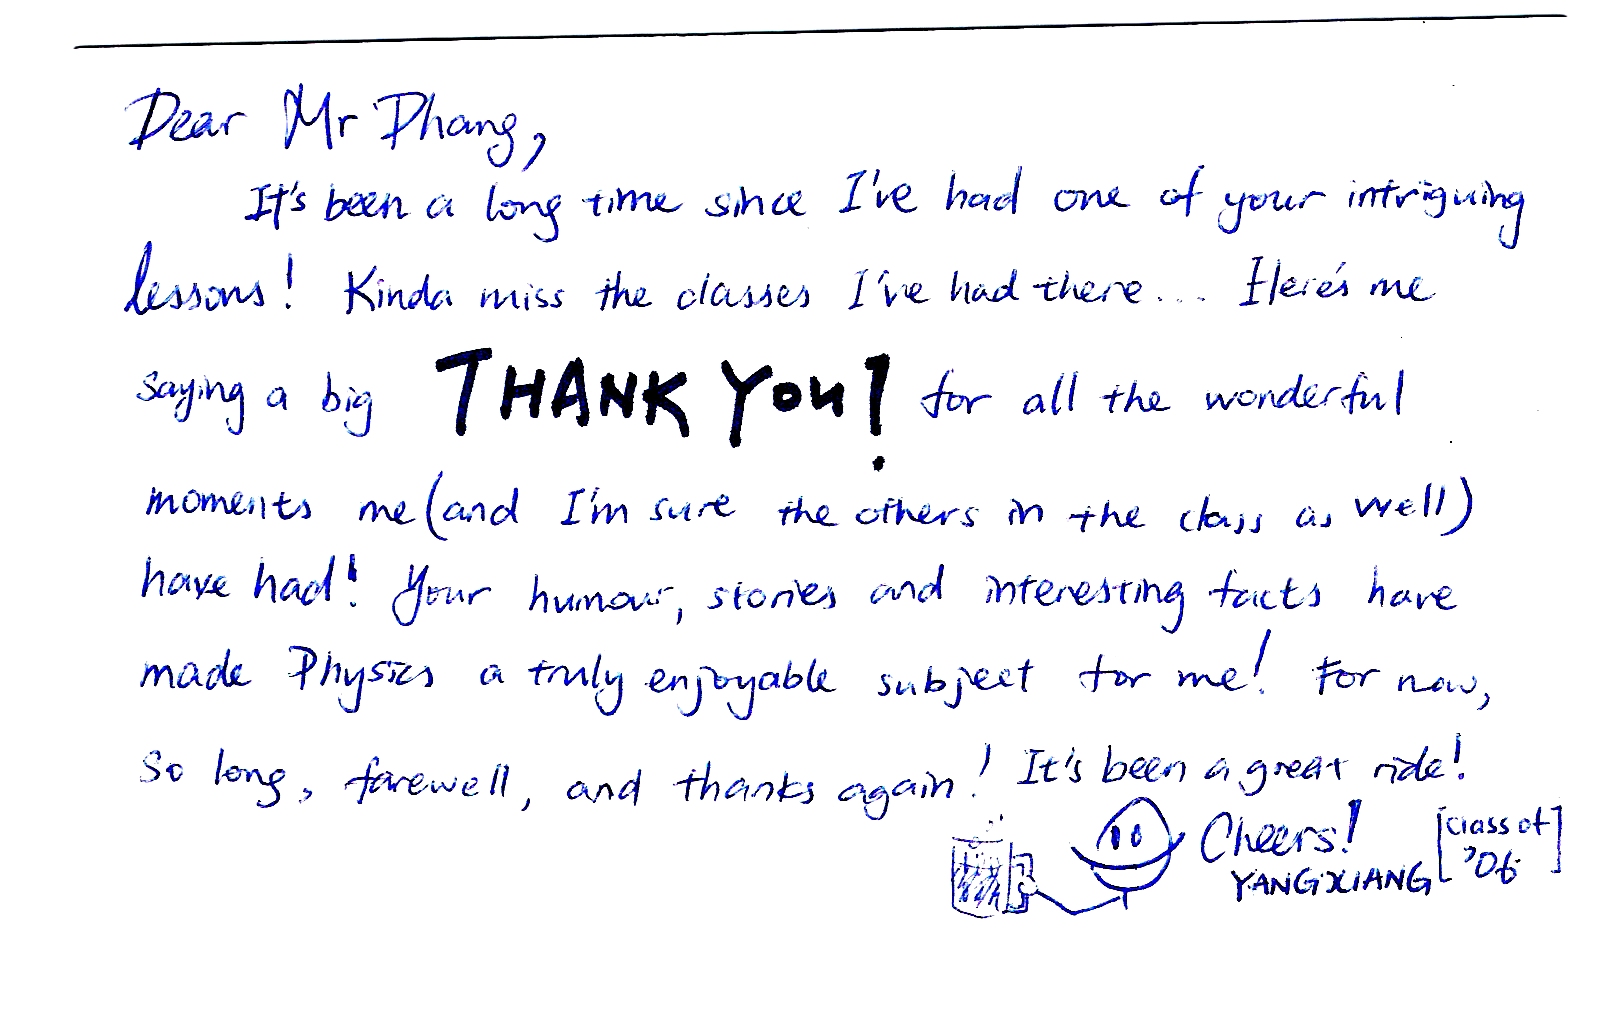 Dear Mr Phang,
It's been a long time since I've had one of your intriguing
lessons! Kinda miss the classes I've had there... Here's me
saying a big THANK YOU! for all the wonderful
moments me (and I'm sure the others in the class as well)
have had! Your humour, stories and interesting facts have
made Physics a truly enjoyable subject for me! For now,
so long, farewell, and thanks again! It's been a great ride!
Cheers! [Class of
YANGXIANG '06]